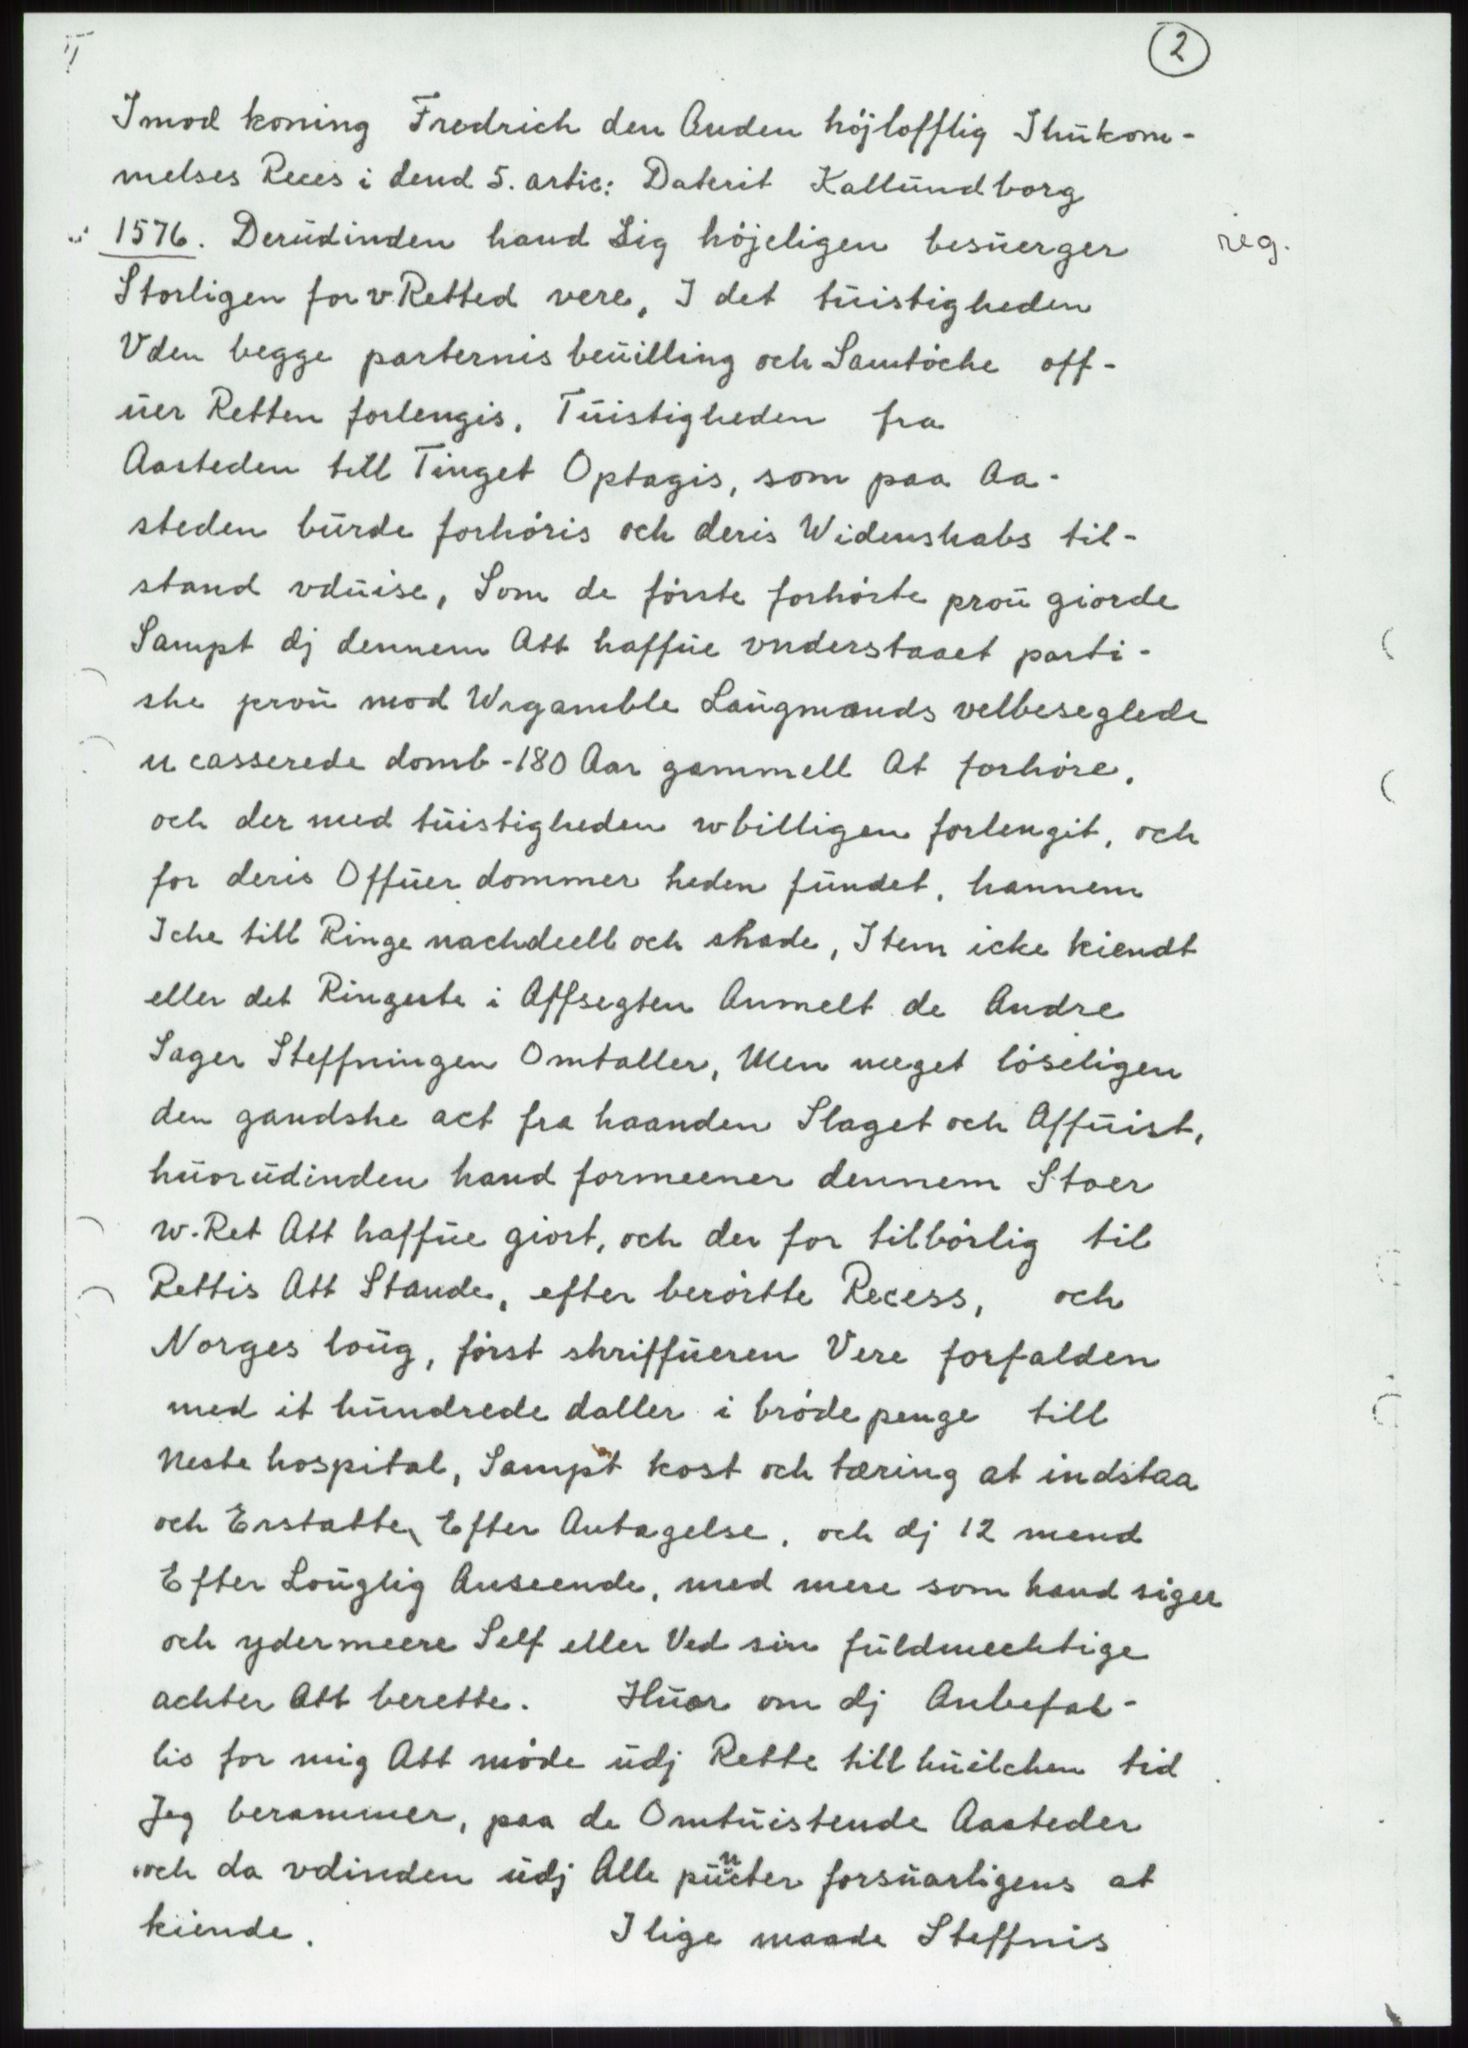 2
Imod koning Fredrich den Anden højlofflig Ihükom-
melses Reces i dend 5. artic: Daterit Kallündborg
1576. Derüdinden hand Sig højeligen besüerger reg.
Storligen for v-Retted vere, I det tüistigheden
Vden begge parternis beüilling och Samtøche off-
üer Retten forlengis, Tüistigheden fra
Aasteden till Tinget Optagis, som paa Aa-
steden bürde forhøris och deris Widenskabs til-
stand vdüise, Som de første forhørte proü giorde
Sampt dj dennem Att haffüe vnderstaaet parti-
ske proü mod Wrgamble Laügmands velbeseglede
u casserede domb - 180 Aar gammell At forhøre,
och der med tüistigheden wbilligen forlengit, och
for deris Offüer dommer heden fündet, hannem
Iche till Ringe nachdeell och skade, Item icke kiendt
eller det Ringeste i Affsegten Anmelt de Andre
Sager Steffningen Omtaller, Men meget løseligen
den gandske act fra haanden Slaget och Affüist,
hüorüdinden hand formeener dennem Stoer
w-Ret Att haffüe giort, och der for tilbørlig til
Rettis Att Stande, efter berørtte Recess, och
Norges loüg, først skriffüeren Vere forfalden
med it hündrede daller i brøde penge till
neste hospital, Sampt kost och tæring at indstaa
och Erstatte, Efter Antagelse, och dj 12 mend
Efter Loüglig Anseende, med mere som hand siger
och ydermeere Self eller Ved sin füldmechtige
achter Att berette. Hüor om dj Anbefal-
lis for mig Att møde üdj Rette till hüilchen tid
Jeg berammer, paa de Omtüistende Aasteder
och da vdinden üdj Alle püncter forsüarligens at
kiende. I lige maade Steffnis